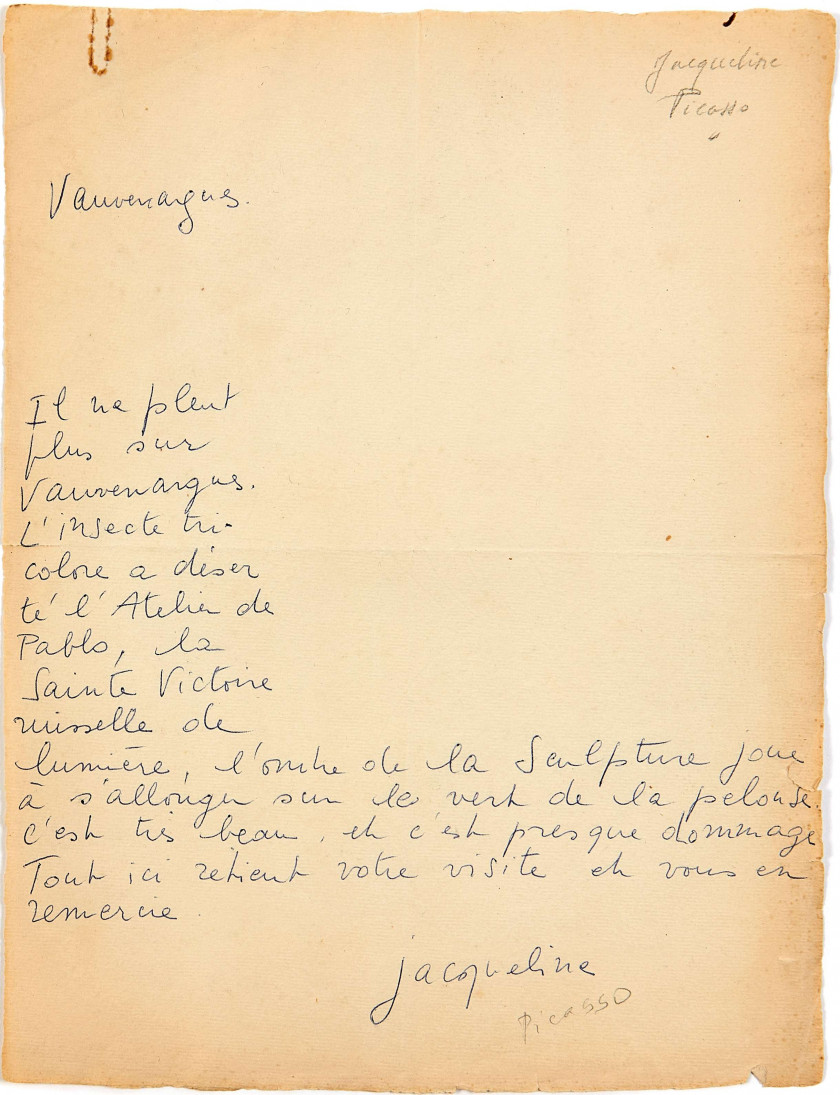 Jacqueline
Picasso
Vauvenargues.
Il ne pleut
plus sur
Vauvenargues.
L'insecte tri-
colore a déser
té l'Atelier de
Pablo, la
Sainte Victoire
ruisselle de
lumière, l'ombre de la Sculpture joue
à s'allonger sur le vert de la pelouse.
C'est très beau, et c'est presque dommage
Tout ici retient votre visite et vous en
remercie.
jacqueline
Picasso